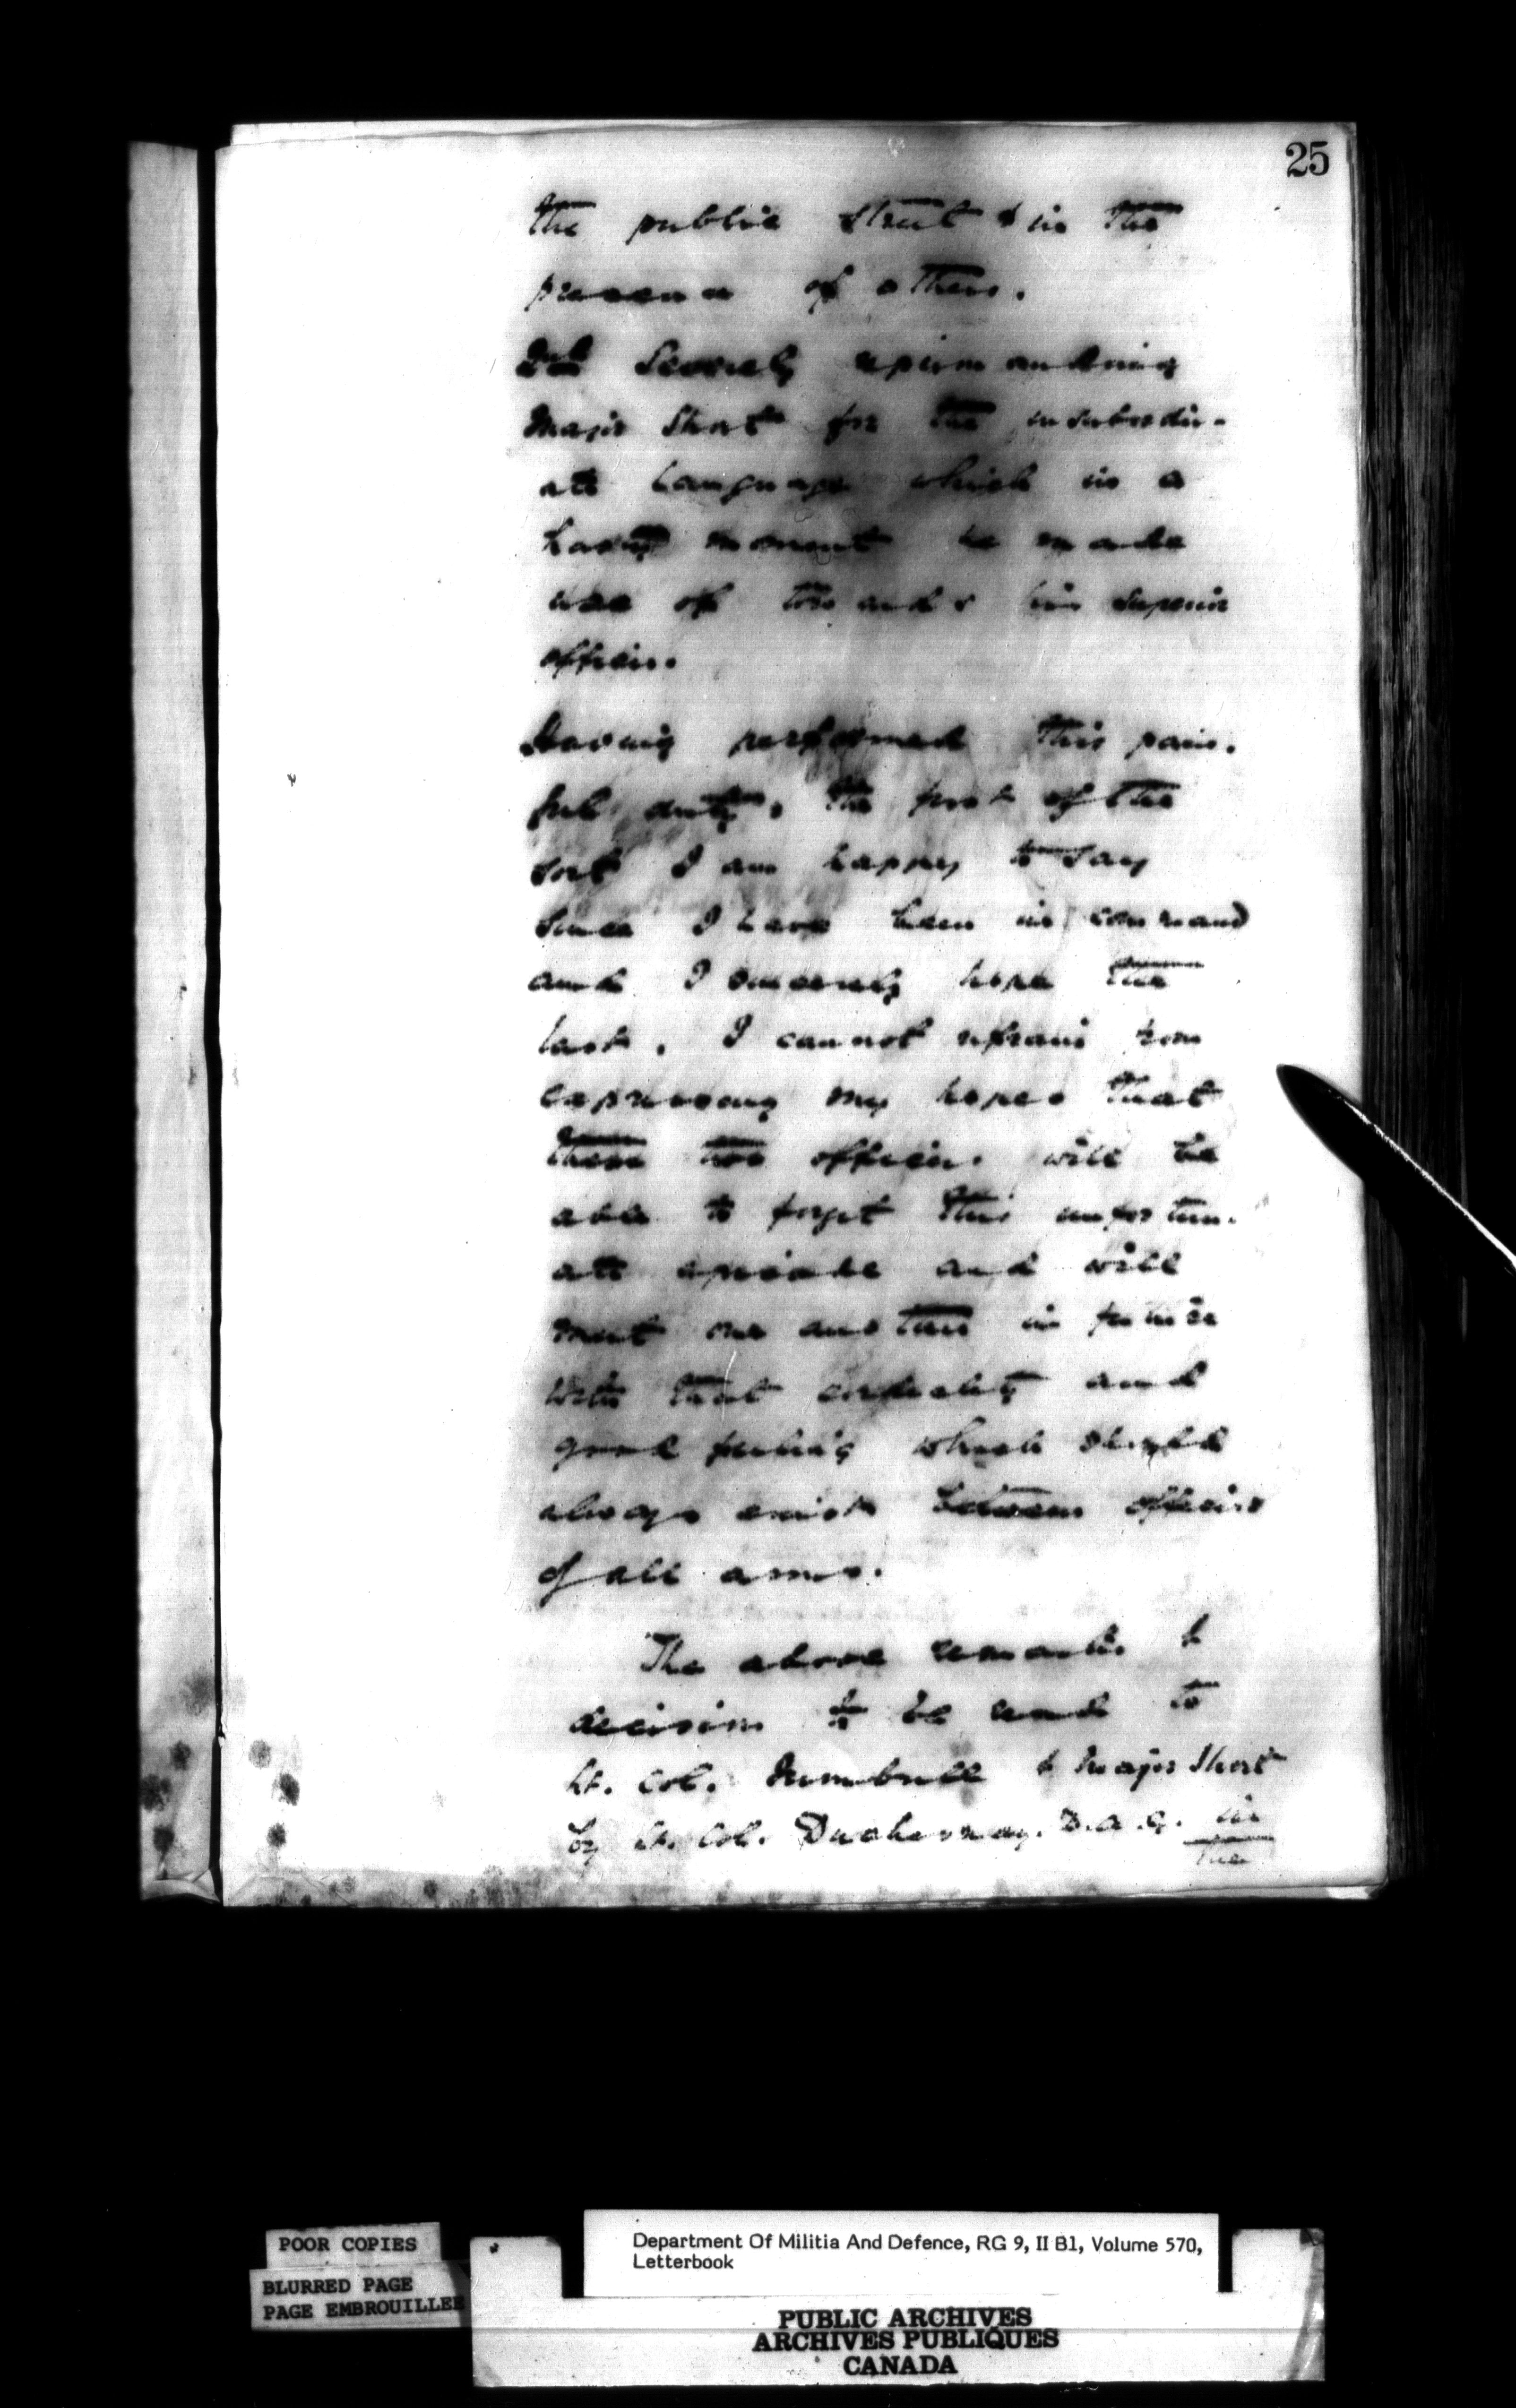 25
the public street & in the
presence of others.
2nd Severely reprimanding
Major Short for the insubordin-
ate language which in a
hasty moment he made
use of towards his superior
officer.
Having performed this pain-
ful duty, the first of the
sort I am happy to say
since I have been in command
and I sincerely hope the
last, I cannot refrain from
expressing my hopes that
these two officers will be
able to forget this unfortun-
ate episode and will
meet one another in future
with that cordiality and
good feeling which should
always exist between officers
of all arms.
The above remarks &
decision to be read to
Lt. Col. Turnbull & Major Short
by Lt. Col. Duchesnay. D.A.G. in
the
POOR COPIES
BLURRED PAGE
PAGE EMBROUILLEE
Department Of Militia And Defence, RG 9, II B1, Volume 570,
Letterbook
PUBLIC ARCHIVES
ARCHIVES PUBLIQUES
CANADA